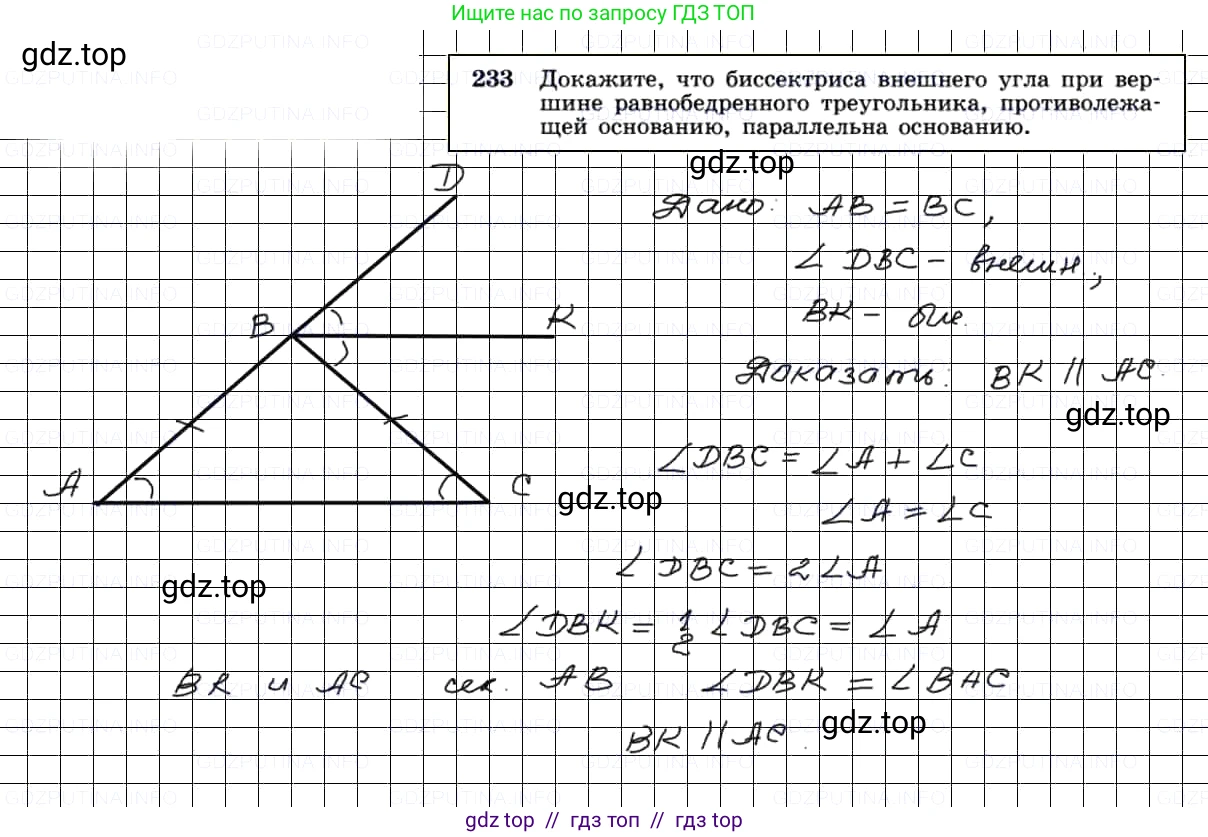 Ищите нас по запросу ГДЗ ТОП
gdz.top
233 Докажите, что биссектриса внешнего угла при вер-
шине равнобедренного треугольника, противолежа-
щей основанию, параллельна основанию.
gdz.top
D
Дано: AB = BC,
∠ DBC – внешн.,
B
K
BK – бис.
Доказать: BK || AC.
gdz.top
∠DBC = ∠A + ∠C
A
C
gdz.top
∠A = ∠C
∠ DBC = 2∠A
gdz.top
∠DBK = 1/2 ∠DBC = ∠A
BK и AC сек. AB ∠DBK = ∠BAC
gdz.top
BK || AC.
gdz.top // гдз топ // гдз top
GDZPUTINA.INFO